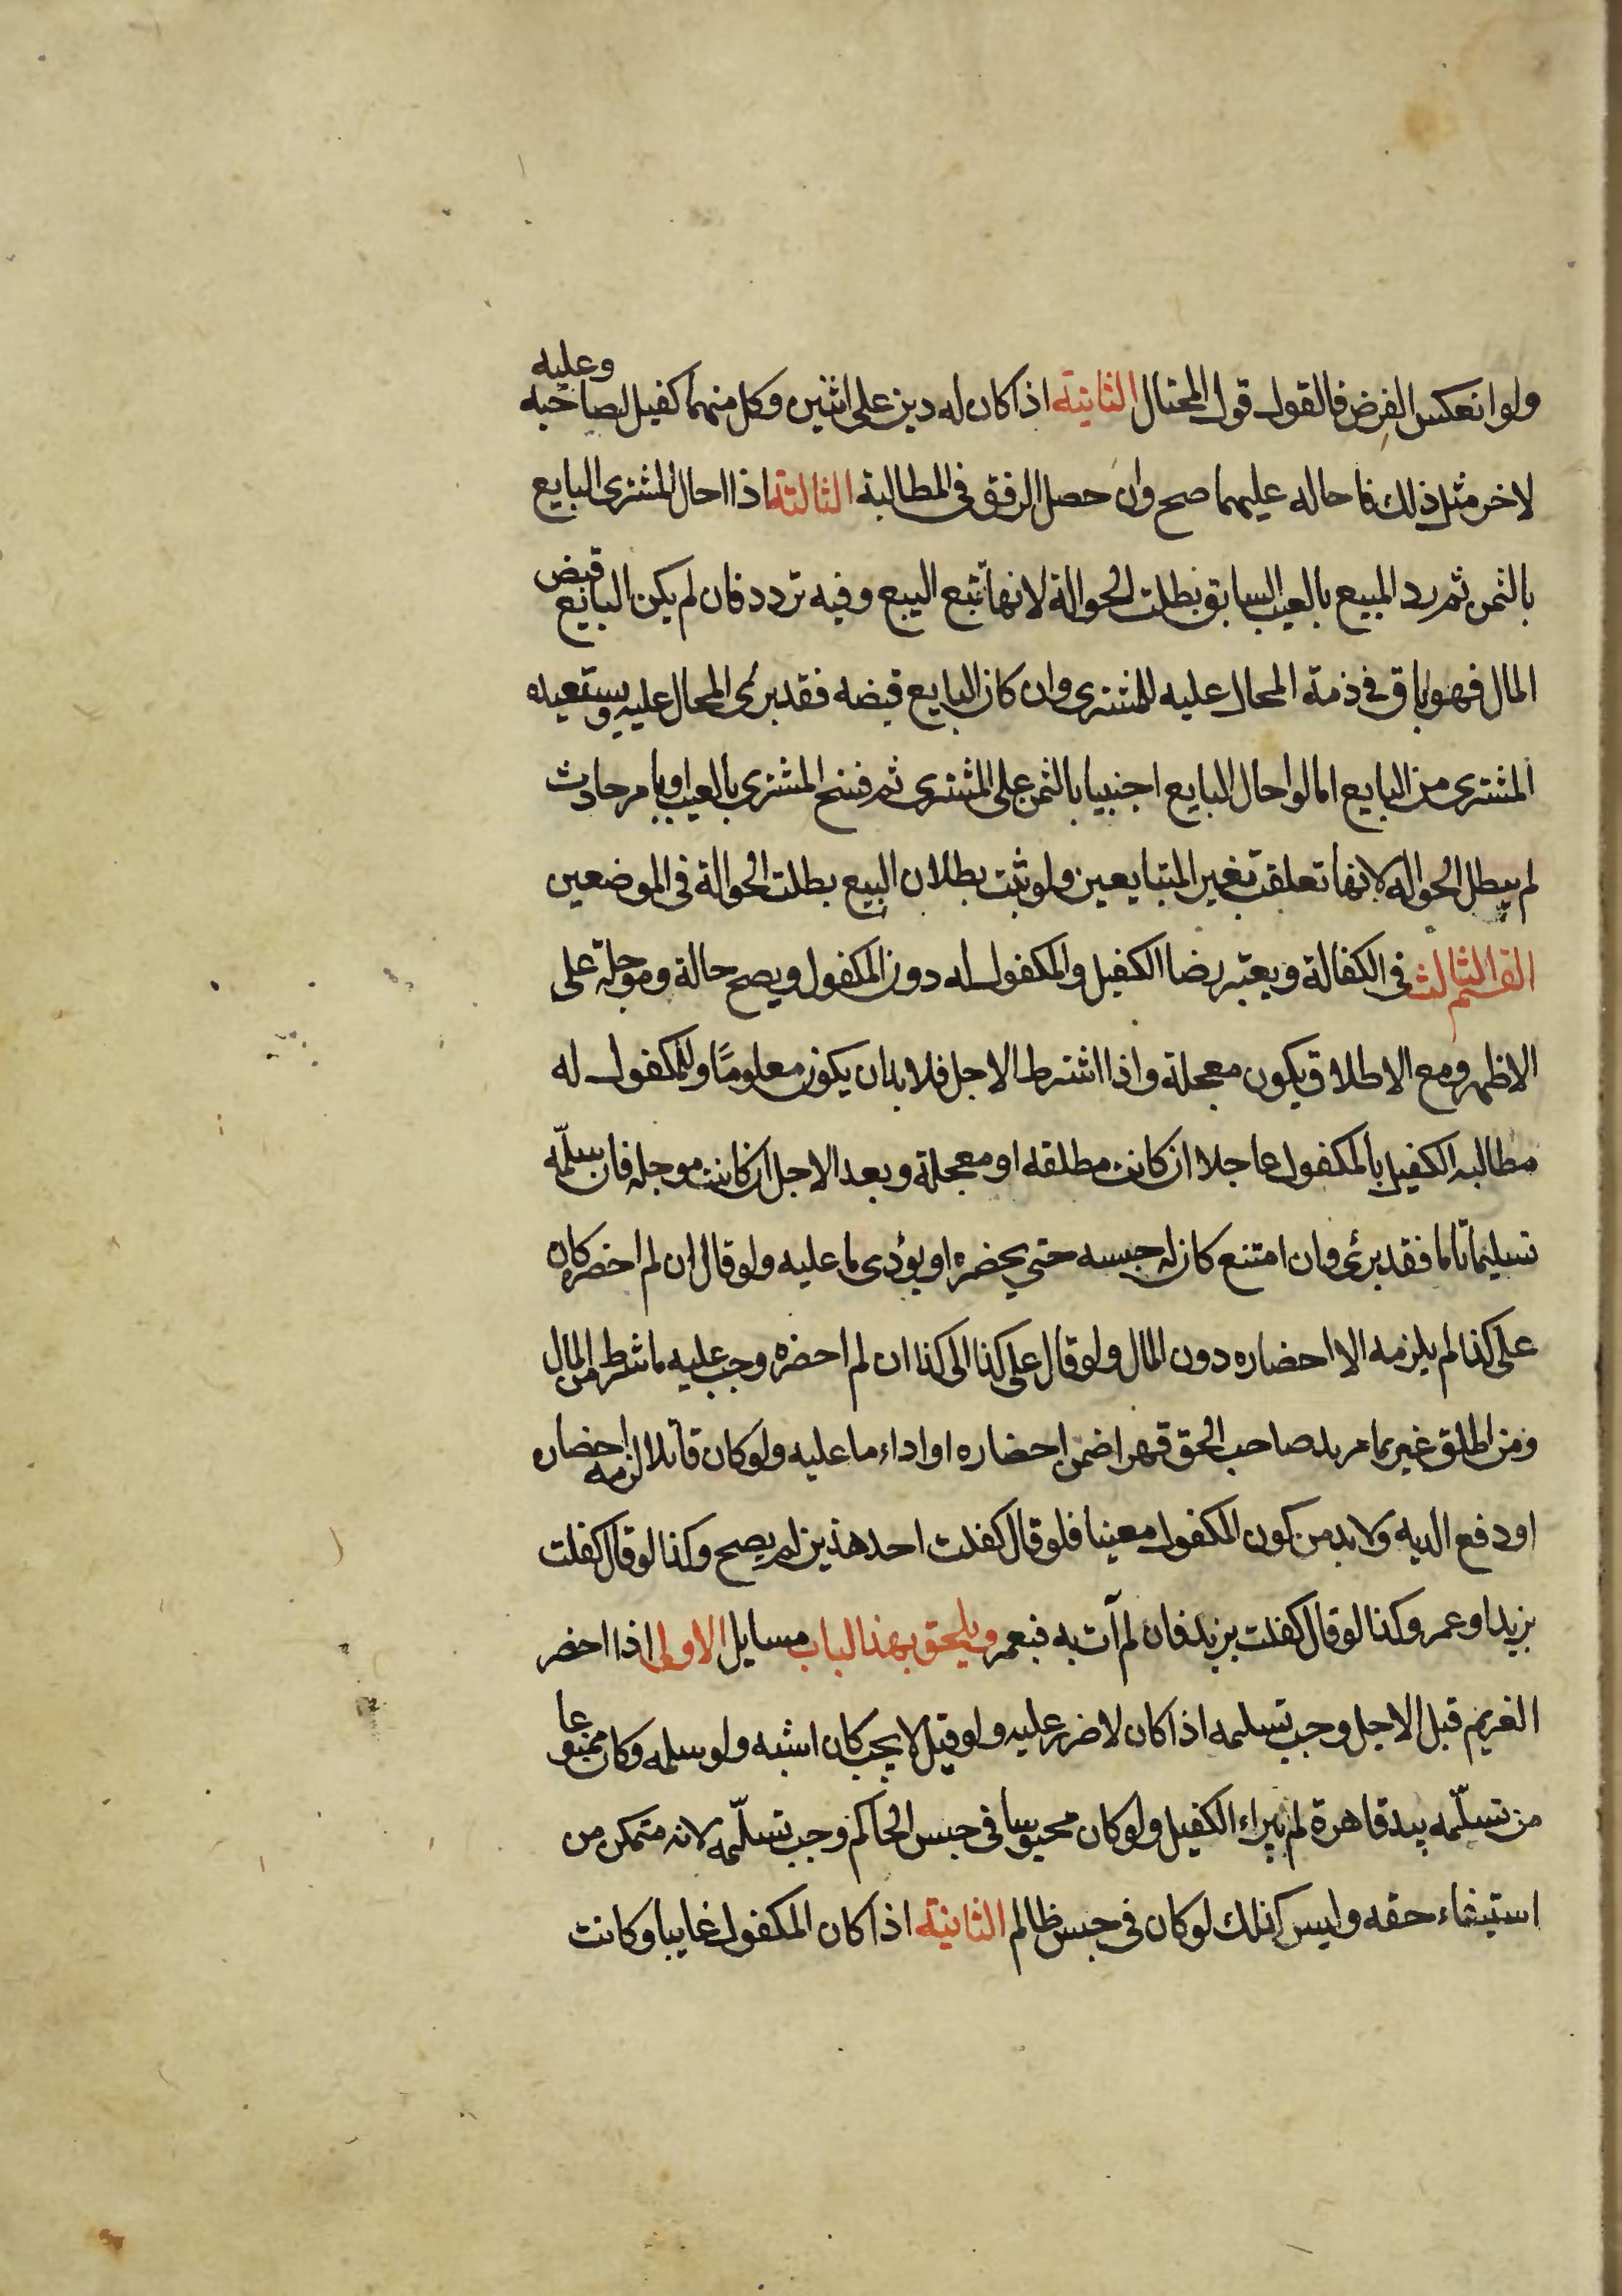 ولو انعكس الفرض فالقول قول المحتال الثانية اذا كان له دين على اثنين وكل منهما كفيل لصاحبه وعليه
لاخر مثل ذلك فاحاله عليهما صح وان حصل الرفق فى المطالبة الثالثة اذا احال المشترى البايع
بالثمن ثم رد المبيع بالعيب السابق بطلت الحوالة لانها تتبع البيع وفيه تردد فان لم يكن البايع قبض
المال فهو باق فى ذمة المحال عليه للمشترى وان كان البايع قبضه فقد برئ المحال عليه ويستعيده
المشترى من البايع اما لو احال البايع اجنبيا بالثمن على المشترى ثم فسخ المشترى بالعيب او بامر حادث
لم يبطل الحواله لانها تعلقت بغير المتبايعين ولو ثبت بطلان البيع بطلت الحوالة فى الموضعين
القسم الثالث فى الكفالة ويعتبر رضا الكفيل والمكفول له دون المكفول ويصح حالة وموجلة على
الاظهر ومع الاطلاق يكون معجلة واذا اشترط الاجل فلا بد ان يكون معلومًا وللمكفول له
مطالبه الكفيل بالمكفول عاجلا ان كانت مطلقه او معجلة وبعد الاجل ان كانت موجله فان سلّمه
تسليما تاما فقد برئ وان امتنع كان له حبسه حتى يحضره او يؤدى ما عليه ولو قال ان لم احضره كان
على كذا لم يلزمه الا احضاره دون المال ولو قال على كذا الى كذا ان لم احضره وجب عليه ما شرط من المال
ومن اطلق غريما من يد صاحب الحق قهرا ضمن احضاره او اداء ما عليه ولو كان قاتلا لزمه احضاره
او دفع الديه ولا بد من كون المكفول معينا فلو قال كفلت احد هذين لم يصح وكذا لو قال كفلت
بزيد او عمرو كذا لو قال كفلت بزيد فان لم آت به فبعمرو ويلحق بهذا الباب مسايل الاولى اذا احضر
الغريم قبل الاجل وجب تسلمه اذا كان لا ضرر عليه ولو قيل لا يجب كان اشبه ولو سلمه وكان ممنوعا
من تسلّمه بيد قاهرة لم يبراء الكفيل ولو كان محبوسا فى حبس الحاكم وجب تسلّمه لانه متمكن من
استيفاء حقه وليس كذلك لو كان فى حبس ظالم الثانية اذا كان المكفول غايبا وكانت